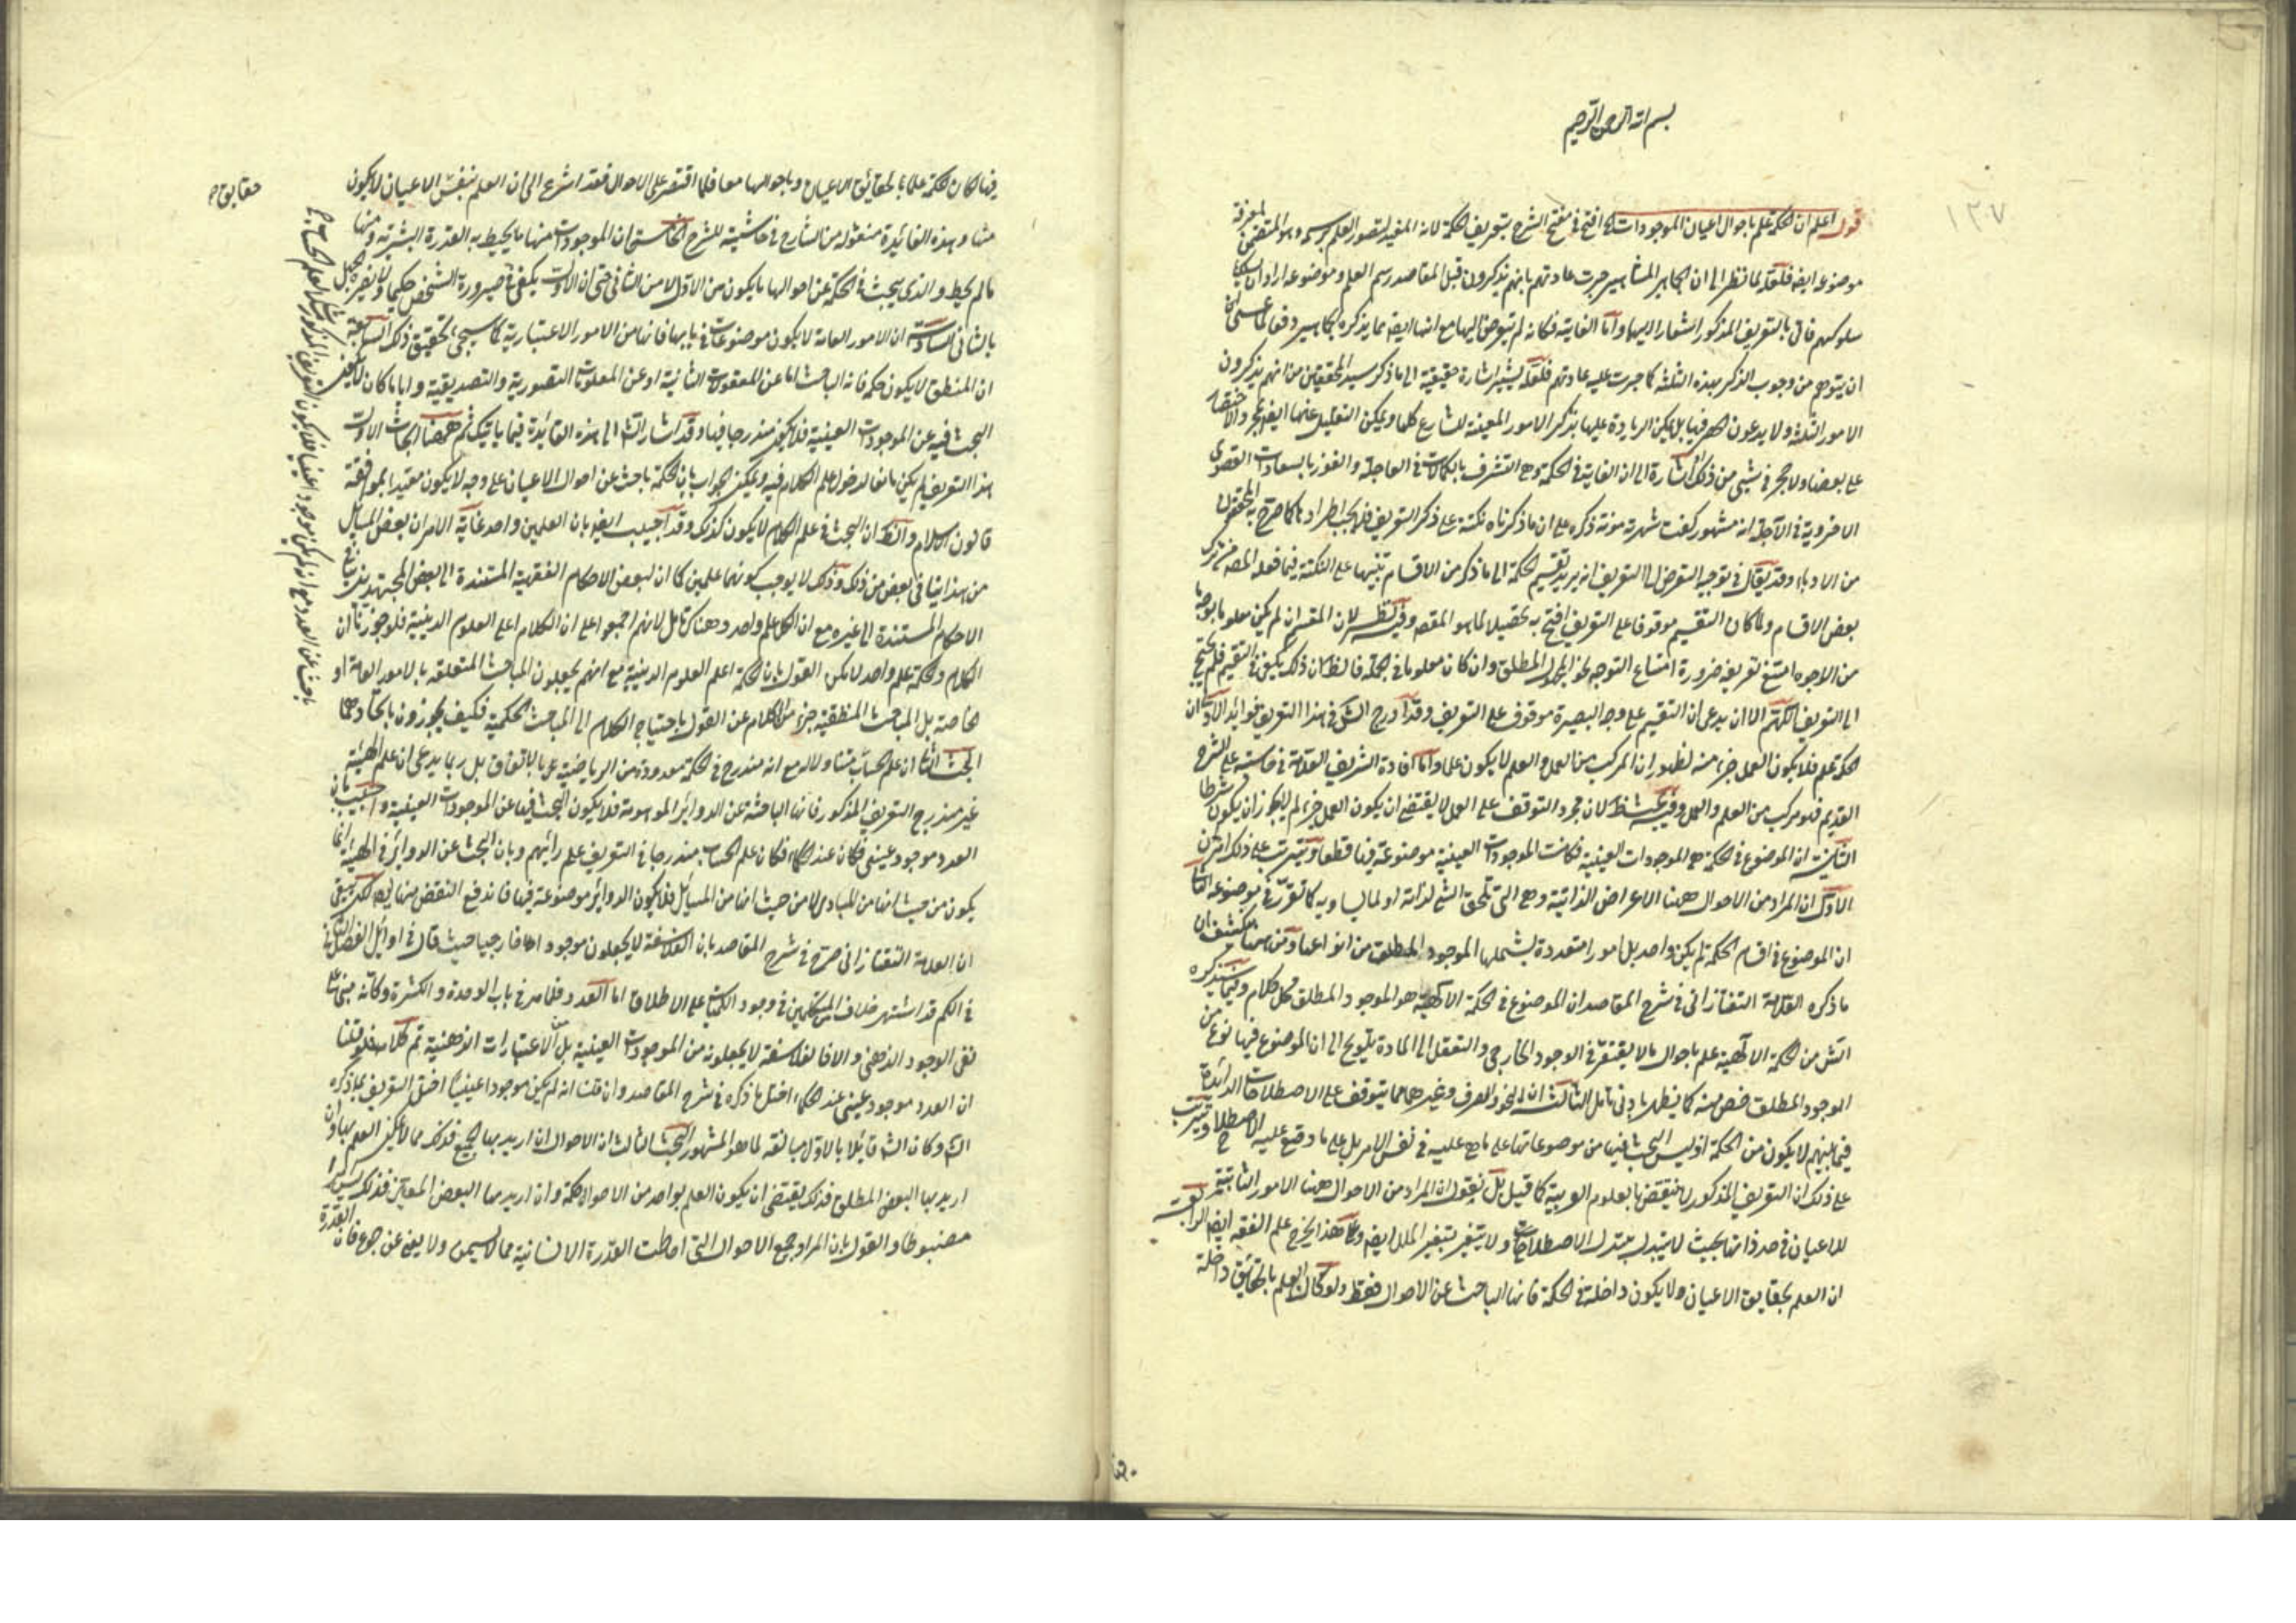 بسم الله الرحمن الرحيم
١٣٧
قوله اعلم ان الحكمة علم باحوال اعيان الموجودات افتتح في مفتتح الشرح بتعريف الحكمة لانه المفيد لتصور العلم برسمه وهو المتضمن لمعرفة
موضوعه ايضا فلعله لما نظر الى ان الجماهير المشاهير جرت عادتهم بانهم يذكرون قبل المقاصد رسم العلم وموضوعه اراد ان يسلك
سلوكهم فاتى بالتعريف المذكور اشعارا اليهما واما الغاية فكانه لم يتعرض اليها مع انها ايضا مما يذكره الجماهير دفعا لما عسى ان
ان يتوهم من وجوب الذكر بهذه الثلثة كما جرت عليه عادتهم فلعله يشير اشارة حقيقية الى ما ذكر سيد المحققين من انهم يذكرون
الامور الثلثة ولا يدعون الحصر فيها بل يمكن الزيادة عليها بذكر الامور المعينة للشارع كلها ويمكن التقليل عنها ايضا والاختصار
على بعضها ولا حجر في شيء من ذلك اشارة الى ان الغاية في الحكمة وهي التشرف بالكمالات في العاجلة والفوز بالسعادات القصوى
الاخروية في الآجلة انه مشهور كفت شهرته مونة ذكره على ان ما ذكرناه نكتة على ذكر التعريف فلا يجب اطرادها كما صرح به المحققون
من الادباء وقد يقال في توجيه التعرض الى التعريف انه يريد تقسيم الحكمة الى ما ذكره من الاقسام تنبيها على النكتة فيما فعله المصنف من ترك
بعض الاقسام ولما كان التقسيم موقوفا على التعريف افتتح به تحصيلا لما هو المقصد وفيه نظر لان المقسم ان لم يكن معلوما بوجه ما
من الاوجه امتنع تعريفه ضرورة امتناع التوجه نحو المجهول المطلق وان كان معلوما في الجملة فالظ ان ذلك يكفي في التقسيم فلم يحتج
الى التعريف اللهم الا ان يدعى ان التقسيم على وجه البصيرة موقوف على التعريف وقد ادرج الش في هذا التعريف فوائد الاولى ان
الحكمة علم فلا يكون العمل جزء منه لظهور ان المركب من العمل والعلم لا يكون علما واما افادة الشريف العلامة في حاشيته على الشرح
القديم فهو مركب من العلم والعمل وفيه نظر لان مجرد التوقف على العمل لا يقتضي ان يكون العمل جزء لم لا يجوز ان يكون شرطا
الثانية ان الموضوع في الحكمة هي الموجودات العينية فكانت الموجودات العينية موضوعة فيها قطعا ويترتب على ذلك امران
الاول ان المراد من الاحوال ههنا الاعراض الذاتية وهي التي تلحق الشيء لذاته او لما يساويه كما تقرر في موضوعه الثاني
ان الموضوع في اقسام الحكمة لم يكن واحد بل امورا متعددة يشملها الموجود المطلق من انواعها ومن ههنا ينكشف ان
ما ذكره العلامة التفتازاني في شرح المقاصد ان الموضوع في الحكمة الالهية هو الموجود المطلق محل كلام وفيما سيذكره
الش من الحكمة الالهية علم باحوال ما لا يفتقر في الوجود الخارجي والتعقل الى المادة يلوح الى ان الموضوع فيها نوع من
الوجود المطلق اخص منه كما يظهر بادنى تامل الثالثة ان النحو والصرف وغيرهما مما يتوقف على الاصطلاحات الدائرة
فيما بينهم لا يكون من الحكمة اذ ليس البحث فيها من موضوعاتها على ما هي عليه في نفس الامر بل على ما وقع عليه الاصطلاح ويترتب
على ذلك ان التعريف المذكور لا ينتقض بالعلوم العربية كما قيل بل نقول ان المراد من الاحوال ههنا الامور الثابتة
للاعيان في حد ذاتها بحيث لا يتبدل بتبدل الاصطلاحات ولا يتغير بتغير الملل ايضا وعلى هذا يخرج علم الفقه ايضا الرابعة
ان العلم بحقايق الاعيان ولا يكون داخلة في الحكمة فانها الباحث عن الاحوال فقط ولو كان العلم بالحقائق داخلة
فيها لكان الحكمة علما بالحقائق الاعيان وباحوالها معا فلما اقتصر على الاحوال فقد اشرع الى ان العلم بنفس الاعيان لا يكون
حقايق
منها وهذه الفائدة منقولة من الشارح في حاشيته للشرح الخامسة ان الموجودات منها ما يحيط به القدرة البشرية ومنها
ما لم يحط والذي يبحث في الحكمة عن احوالها ما يكون من الاول لا من الثاني حتى ان الاول يكفي في صيرورة الشخص حكيما ولا يضره الجهل
بالثاني السادسة ان الامور العامة لا يكون موضوعات في بابها فانها من الامور الاعتبارية كما سيجيء تحقيق ذلك السابعة
ان المنطق لا يكون حكمة فانه الباحث اما عن المعقولات الثانية او عن المعلومات التصورية والتصديقية واياما كان لا يكون
البحث فيه عن الموجودات العينية فلا يكون مندرجا فيها وقد اشار الش الى هذه الفائدة فيما ياتيك ثم ههنا ابحاث الاول
هذا التعريف لم يكن مانعا لدخول علم الكلام فيه ويمكن الجواب بان الحكمة باحث عن احوال الاعيان على وجه لا يكون مقيدا بموافقة
قانون الاسلام والظ ان البحث في علم الكلام لا يكون كذلك وقد اجيب ايضا بان العلمين واحد غاية الامر ان بعض المسائل
من هذا ينافي بعض من ذلك وذلك لا يوجب كونهما علمين كما ان لبعض الاحكام الفقهية المستندة الى بعض المجتهدين ينافي
الاحكام المستندة الى غيره مع ان الكل علم واحد وهناك تامل لانهم اجمعوا على ان الكلام اعلى العلوم الدينية فلو جوزنا ان
الكلام والحكمة علم واحد لامكن القول بان الحكمة اعلم العلوم الدينية مع انهم يجعلون المباحث المتعلقة بالامور العامة او
خاصة بل المباحث المنطقية جزء من الكلام عن القول باحتياج الكلام الى المباحث الحكمية فكيف يجوزون باتحادهما
البحث الثاني ان علم الحساب متناولا له مع انه مندرج في الحكمة معدودة من الرياضية بالاتفاق بل ربما يدعى ان علم الهيئة
غير مندرج التعريف المذكور فانها الباحثة عن الدوائر الموهومة فلا يكون البحث فيها عن الموجودات العينية واجيب بان
العدد موجود عيني عند الحكماء فكان علم الحساب مندرجا في التعريف على رأيهم وبان البحث عن الدوائر في الهيئة انما
يكون من حيث انها من المبادي لا من حيث انها من المسائل فلا يكون الدوائر موضوعة فيها فاندفع النقض بهما لكن بقي
ان العلامة التفتازاني صرح في شرح المقاصد بان الفلاسفة لا يجعلون موجودا خارجيا حيث قال في اوائل الفصل الثاني
في الكم قد اشتهر خلاف المتكلمين في وجود الكميات على الاطلاق اما العدد فلما مر في باب الوحدة والكثرة وكانه مبني على
نفي الوجود الذهني والا فالفلاسفة لا يجعلونه من الموجودات العينية بل من الاعتبارات الذهنية تم كلامه فلو قلنا
ان العدد موجود عيني عند الحكماء اختل ما ذكره في شرح المقاصد وان قلت انه لم يكن موجودا عينيا اختل التعريف بما ذكره
الش وكان الش قائلا بالاول مخالفة لما هو المشهور البحث الثالث ان الاحوال ان اريد بها الجميع فذلك مما لا يمكن العلم بها وان
اريد بها البعض المطلق فذلك يقتضي ان يكون العلم بواحد من الاحوال حكمة وان اريد بها البعض المعين فذلك ليس امرا
مضبوطا والقول بان المراد جميع الاحوال التي احاطت القدرة الانسانية مما لا يسمن ولا يغني عن جوع فان القدرة